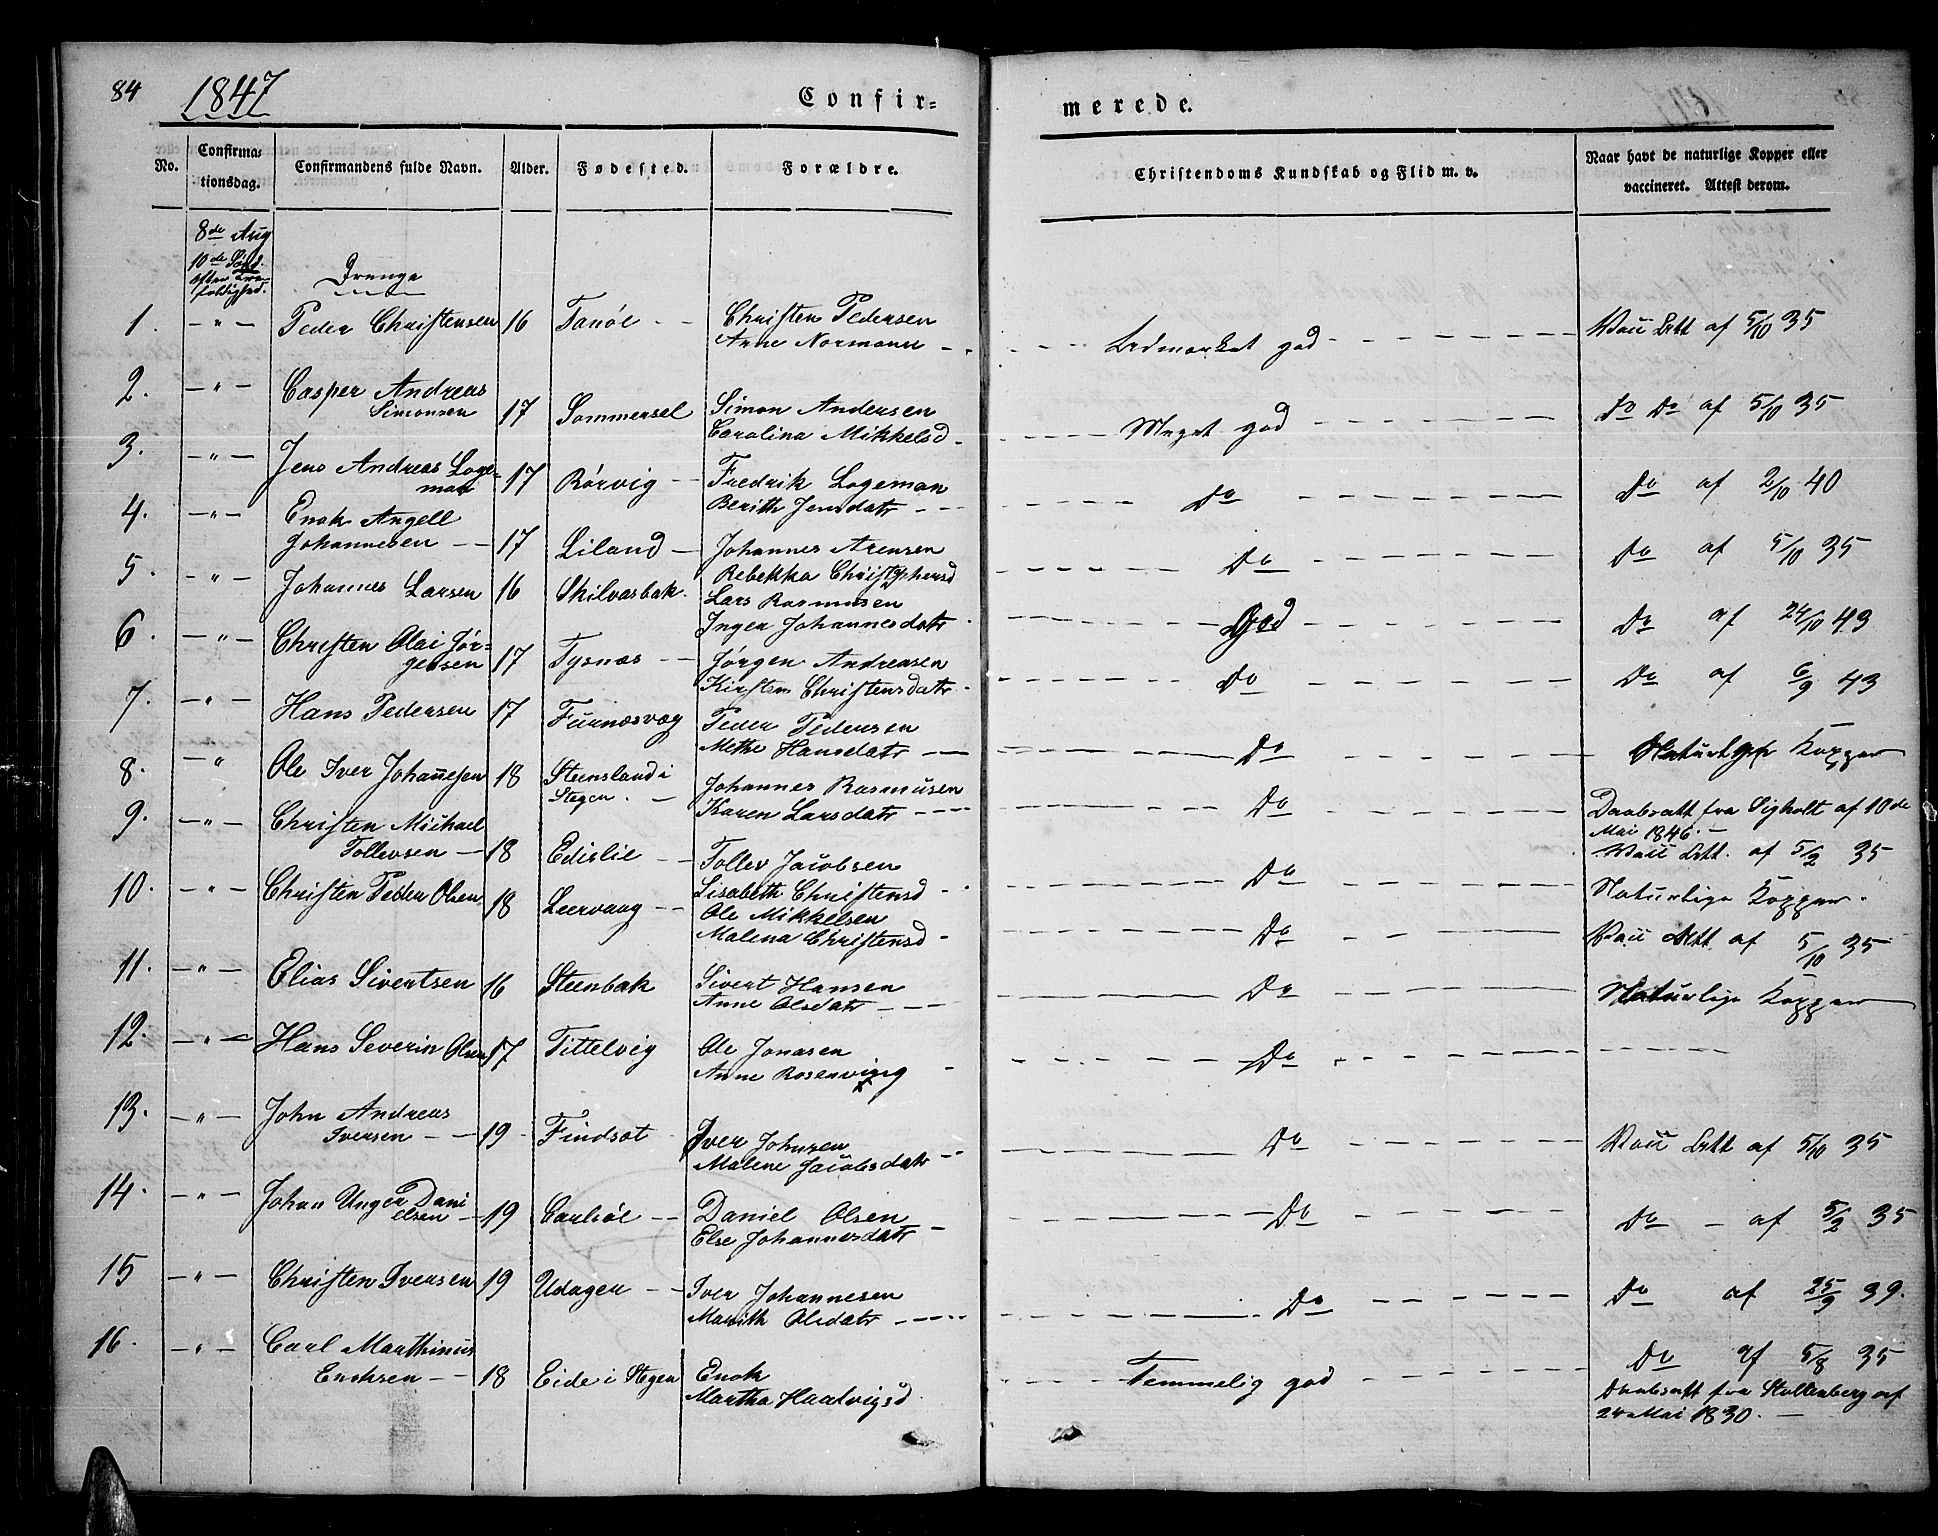 84 1847 Confir=
merede.
No. Confirma= tionsdag. Confirmandens fulde Navn. Alder. Fødested. Forældre. Christendoms Kundskab og Flid m. v. Naar havt de naturlige Kopper eller vaccineret. Attest derom.
8de Aug
10de Sönd.
efter Tre=
foldighed.
Drenge
1. — " — Peder Christensen 16 Tanöe Christen Pedersen
Anne Normann Udmærket god Vacc Att af 5/10 35
2. — " — Casper Andreas
Simonsen 17 Sommersel Simon Andersen
Carolina Mikkelsd Meget god Do Do af 5/10 35
3. — " — Jens Andreas Loge=
man 17 Rörvig Fredrik Logeman
Berith Jensdatr Do Do af 2/10 40
4. — " — Enok Angell
Johannesen 17 Liland Johannes Arensen
Rebekka Christophersd Do Do af 5/10 35
5. — " — Johannes Larsen 16 Skilvasbak Lars Rasmusen
Inger Johannesdatr God Do af 24/10 43
6. — " — Christen Olai Jör=
gensen 17 Tysnæs Jörgen Andreasen
Kirsten Christensdatr Do Do af 6/9 43
7. — " — Hans Pedersen 17 Furnæsvæg Peder Pedersen
Methe Hansdatr Do Naturlige Kopper
8. — " Ole Iver Johañesen 18 Steensland i
Stegen Johannes Rasmusen
Karen Larsdatr Do Daabsatt fra Sigholt af 10de
Mai 1846. —
9. — " — Christen Michael
Tollevsen 18 Edislie Tollev Jacobsen
Lisabeth Christensd Do Vacc Att. af 5/2 35
Naturlige Kopper.
10. — " — Christen Peder Olsen 18 Leervaag Ole Mikkelsen
Malena Christensd Do Vacc Att af 5/10 35
11. — " — Elias Sivertsen 16 Steenbak Sivert Hansen
Anne Olsdatr Do Naturlige Kopper
12. — " — Hans Severin Olsen 17 Tittelvig Ole Jonasen
Anne Rosenving Do
13. — " — John Andreas
Iversen 19 Findsæt Iver Johnsen
Malene Jacobsdatr Do Vacc Att af 5/10 35
14. — " — Johan Unger Dani
elsen 19 Carlsöe Daniel Olsen
Else Johannesdatr Do Do — af 5/2 35
15 — " — Christen Iversen 19 Udager Iver Johannesen
Marith Olsdatr Do Do af 25/9 39.
16. — " — Carl Marthinus
Enoksen 18 Eide i Stegen Enok
Martha Haatvigsd Temmelig god Do af 5/8 35
Daabsatt fra Stoltenberg af
24 Mai 1830. —